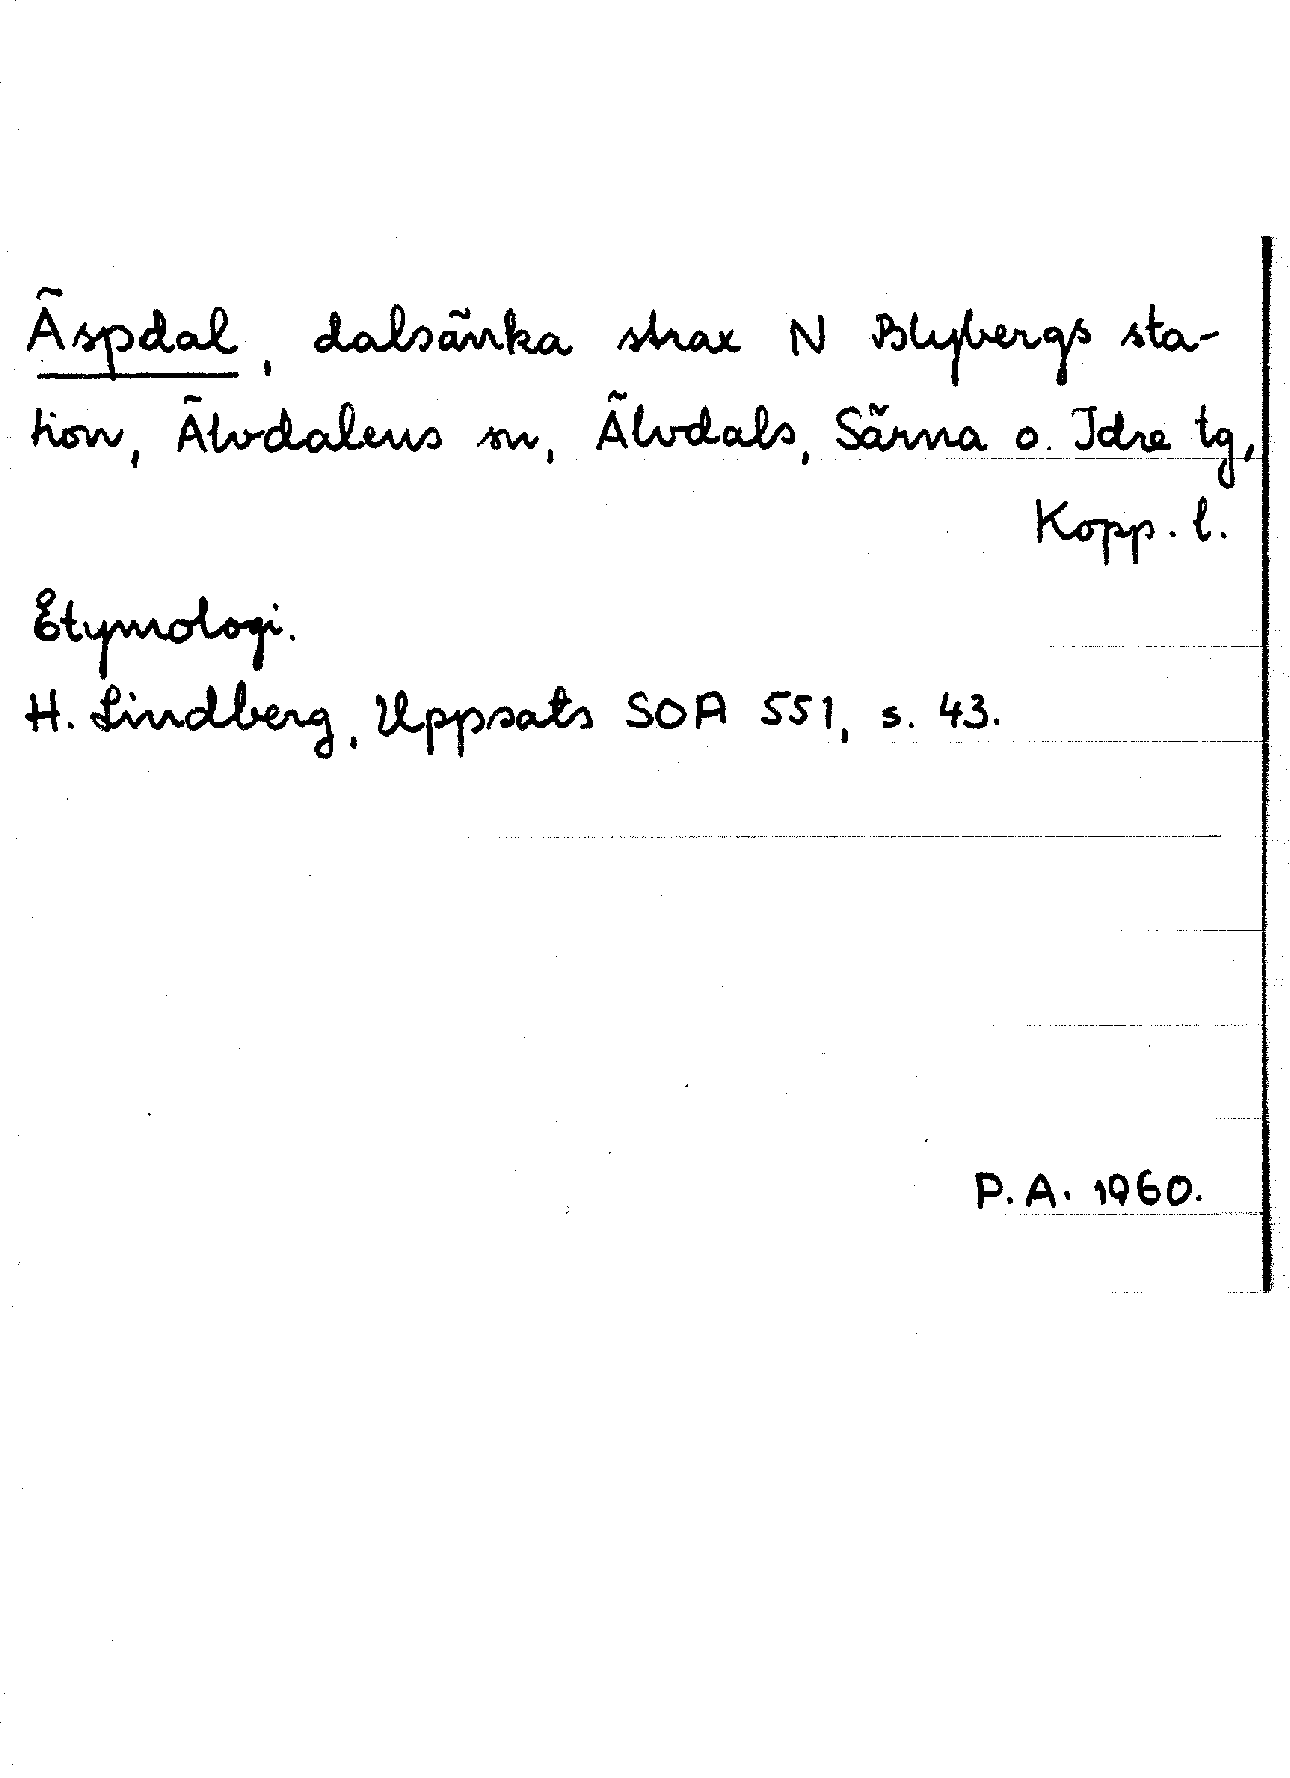 Äspdal, dalsänka strax N Blybergs sta-
tion, Älvdalens sn, Älvdals, Särna o. Idre tg,
Kopp. l.
Etymologi.
H. Lindberg, Uppsats SOA 551, s. 43.
P.A. 1960.